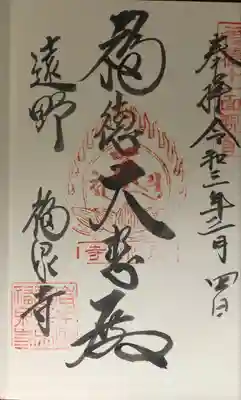 奉拝 令和三年二月四日
福徳大悲殿
遠野 福泉寺